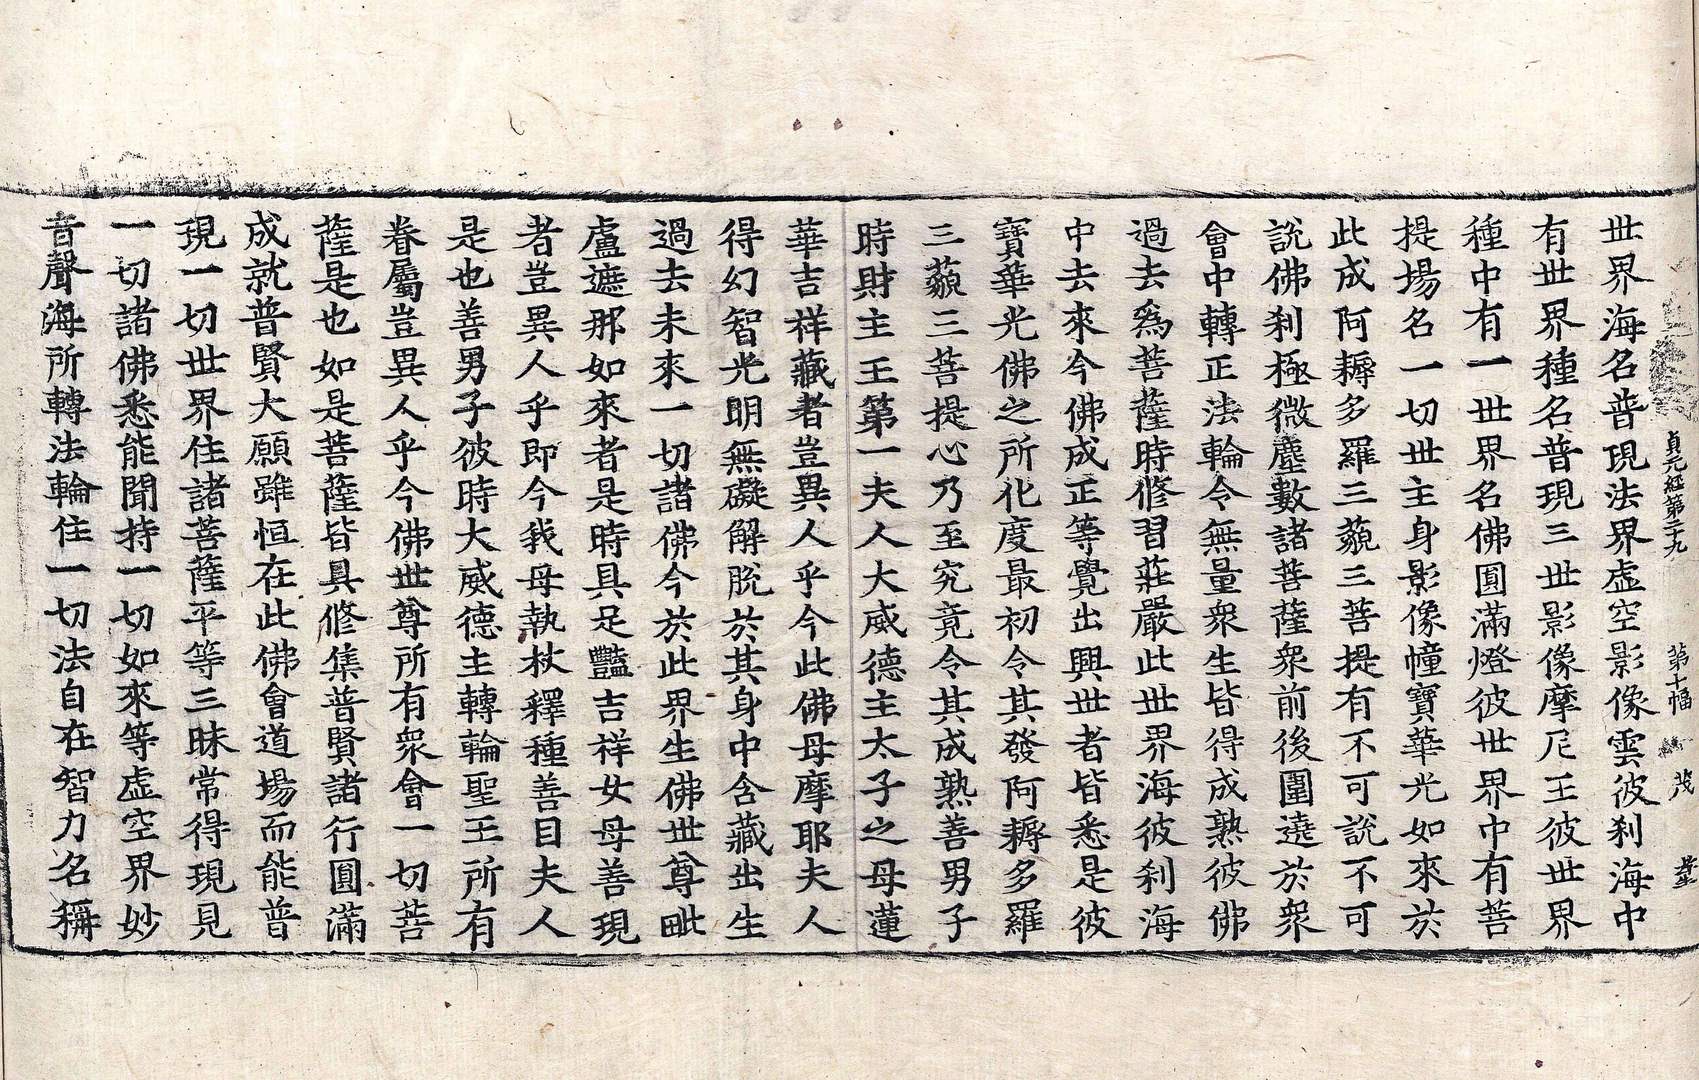 貞元經第二十九 第十幅 茂
世界海名普現法界虛空影像雲彼刹海中
有世界種名普現三世影像摩尼王彼世界
種中有一世界名佛圓滿燈彼世界中有菩
提場名一切世主身影像幢寶華光如來於
此成阿耨多羅三藐三菩提有不可說不可
說佛刹極微塵數諸菩薩衆前後圍遶於衆
會中轉正法輪令無量衆生皆得成熟彼佛
過去爲菩薩時修習莊嚴此世界海彼刹海
中去來今佛成正等覺出興世者皆悉是彼
寶華光佛之所化度最初令其發阿耨多羅
三藐三菩提心乃至究竟令其成熟善男子
時財主王第一夫人大威德主太子之母蓮
華吉祥藏者豈異人乎今此佛母摩耶夫人
得幻智光明無礙解脫於其身中含藏出生
過去未來一切諸佛今於此界生佛世尊毗
盧遮那如來者是時具足豔吉祥女母善現
者豈異人乎即今我母執杖釋種善目夫人
是也善男子彼時大威德主轉輪聖王所有
眷屬豈異人乎今佛世尊所有衆會一切菩
薩是也如是菩薩皆具修集普賢諸行圓滿
成就普賢大願雖恒在此佛會道場而能普
現一切世界住諸菩薩平等三昧常得現見
一切諸佛悉能聞持一切如來等虛空界妙
音聲海所轉法輪住一切法自在智力名稱